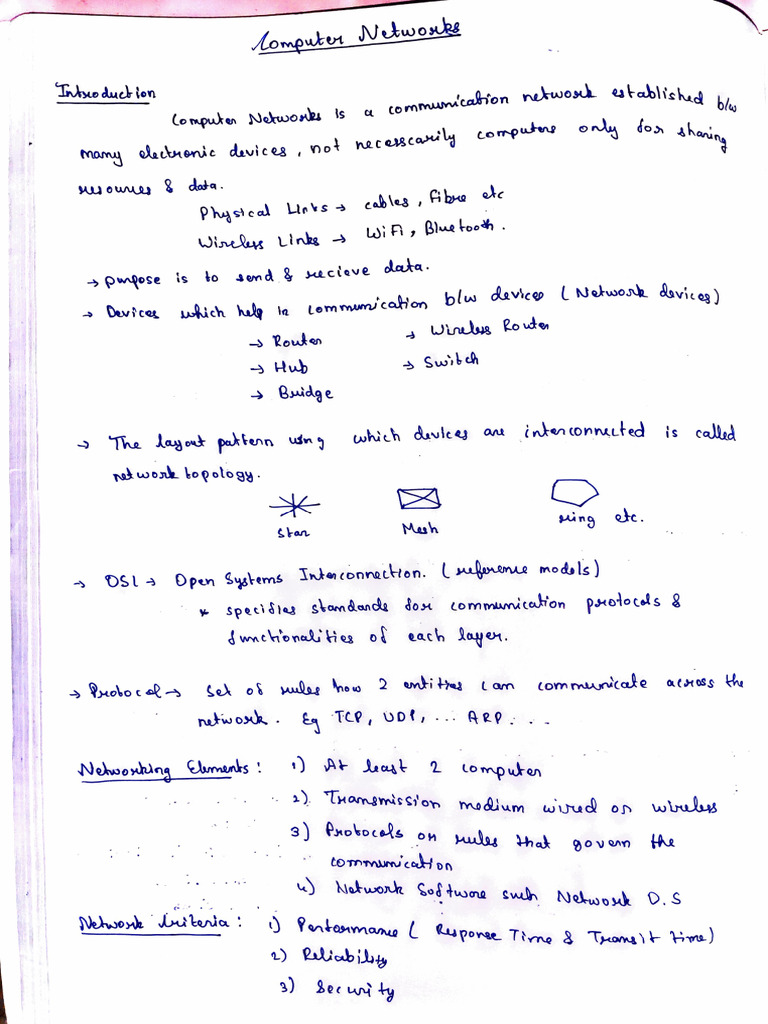 Computer Networks
Introduction
Computer Networks is a communication network established b/w
many electronic devices, not necesscarily computers only for sharing
resources & data.
Physical Links → cables, fibre etc
Wireless Links → WiFi, Bluetooth.
→ purpose is to send & recieve data.
→ Devices which help in communication b/w devices (Network devices)
→ Router → Wireless Router
→ Hub → Switch
→ Bridge
→ The layout pattern using which devices are interconnected is called
network topology.
Star Mesh ring etc.
→ OSI → Open Systems Interconnection. (reference models)
* specifies standards for communication protocols &
functionalities of each layer.
→ Protocol → Set of rules how 2 entities can communicate across the
network. Eg TCP, UDP, ... ARP. ...
Networking Elements : 1) At least 2 computer
2) Transmission medium wired or wireless
3) Protocols or rules that govern the
communication
4) Network Software such Network O.S
Network Criteria : 1) Performance ( Response Time & Transit time)
2) Reliability
3) Security